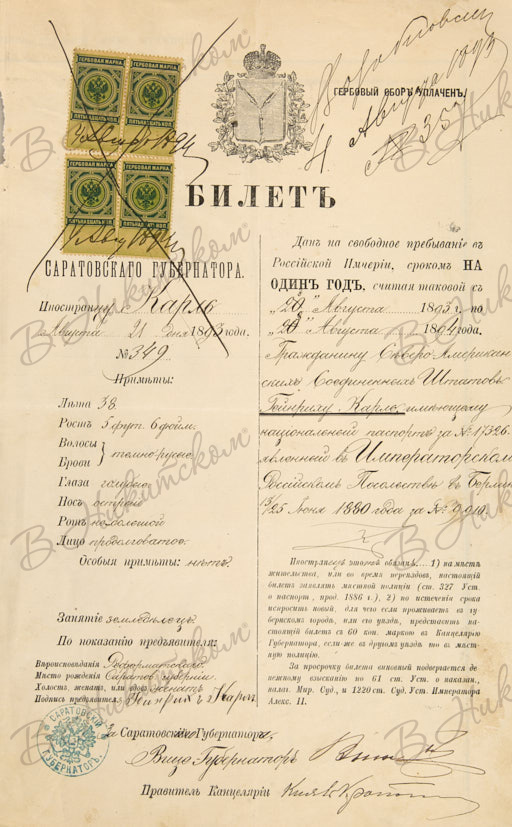 ГЕРБОВАЯ МАРКА
ГЕРБОВАЯ МАРКА
ПЯТЬНАДЦАТЬ КОП.
ПЯТЬНАДЦАТЬ КОП.
ГЕРБОВАЯ МАРКА
ГЕРБОВАЯ МАРКА
ПЯТЬНАДЦАТЬ КОП.
ПЯТЬНАДЦАТЬ КОП.
ГЕРБОВЫЙ СБОРЪ УПЛАЧЕНЪ.
4 Августа 1893
№ 357
БИЛЕТЪ
САРАТОВСКАГО ГУБЕРНАТОРА.
Иностранцу Карлъ
Августа 21 дня 1893 года.
№ 349
Примѣты:
Лѣта 38
Ростъ 5 фут. 6 дюйм.
Волосы
Брови } темнорусые
Глаза голубые
Носъ острый
Ротъ небольшой
Лицо продолговатое
Особыя примѣты: нѣтъ
Занятіе земледѣлецъ
По показанію предъявителя:
Вѣроисповѣданія Реформатскаго
Мѣсто рожденія Саратов. губерніи
Холостъ, женатъ, или вдовъ женатъ
Подпись предъявителя Гейнрихъ Карлъ
Данъ на свободное пребываніе въ
Россійской Имперіи, срокомъ НА
ОДИНЪ ГОДЪ, считая таковой съ
„20" Августа 1893 г. по
„20" Августа 1894 года,
Гражданину Сѣверо-Американ-
скихъ Соединенныхъ Штатовъ
Гейнриху Карлъ, имѣющему
національный паспортъ за № 1/326
явленный въ Императорскомъ
Россійскомъ Посольствѣ въ Берлинѣ
13/25 Июня 1880 года за № 9910.
Иностранецъ этотъ обязанъ... 1) на мѣстѣ
жительства, или во время переѣздовъ, настоящій
билетъ заявлять мѣстной полиціи (ст. 327 Уст.
о паспорт., прод. 1886 г.), 2) по истеченіи срока
испросить новый, для чего если проживаетъ въ гу-
бернскомъ городѣ, или его уѣздѣ, представить на-
стоящій билетъ съ 60 коп. маркою въ Канцелярію
Губернатора, если-же въ другомъ уѣздѣ то въ мѣст-
ную полицію.
За просрочку билета виновный подвергается де-
нежному взысканію по 61 ст. Уст. о наказан.,
налаг. Мир. Суд. и 1220 ст. Суд. Уст. Императора
Алекс. II.
За Саратовскаго Губернатора,
Вице-Губернаторъ
Правитель Канцеляріи
САРАТОВСКІЙ ГУБЕРНАТОРЪ.
В. Никитскомъ